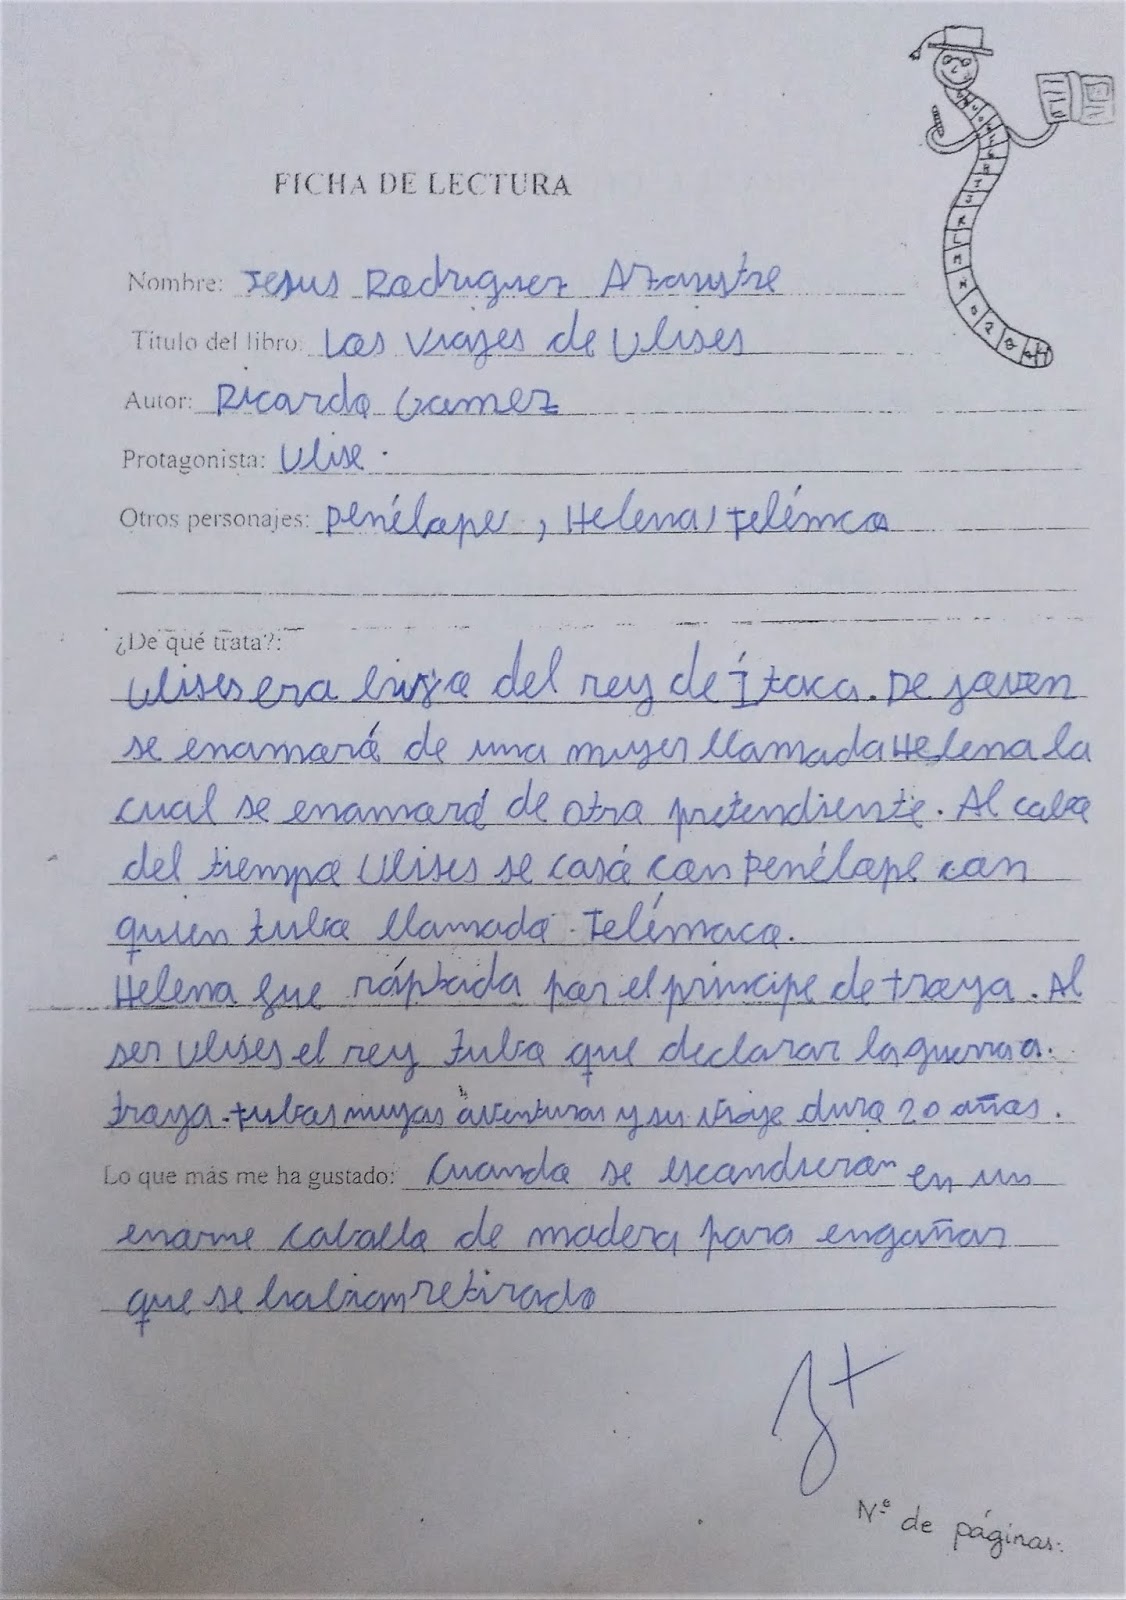 FICHA DE LECTURA
Nombre: Jesus Rodriguez Azaustre
Título del libro: Los viajes de Ulises
Autor: Ricardo Gomez
Protagonista: Ulise.
Otros personajes: Penélope, Helena, Telémco
¿De qué trata?:
Ulises era hijo del rey de Ítaca. De joven
se enamoró de una mujer llamada Helena la
cual se enamoró de otro pretendiente. Al cabo
del tiempo Ulises se casó con Penélope con
quien tubo llamado Telémaco.
Helena fue ráptada por el principe de troya. Al
ser Ulises el rey tubo que declarar la guerra a.
troya. tubos muyos aventuras y su viaje duro 20 años.
Lo que más me ha gustado: Cuando se escondieron en un
enorme caballo de madera para engañar
que se habian retirado
Nº de páginas: